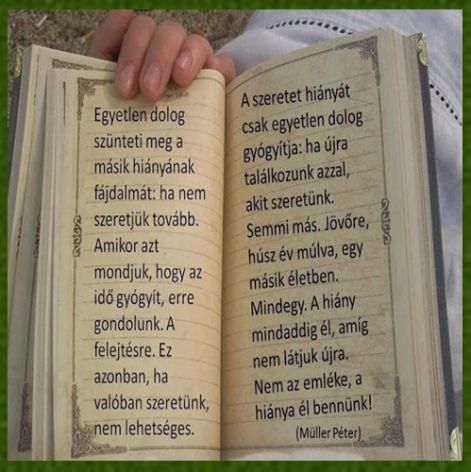 Egyetlen dolog
szünteti meg a
másik hiányának
fájdalmát: ha nem
szeretjük tovább.
Amikor azt
mondjuk, hogy az
idő gyógyít, erre
gondolunk. A
felejtésre. Ez
azonban, ha
valóban szeretünk,
nem lehetséges.
A szeretet hiányát
csak egyetlen dolog
gyógyítja: ha újra
találkozunk azzal,
akit szeretünk.
Semmi más. Jövőre,
húsz év múlva, egy
másik életben.
Mindegy. A hiány
mindaddig él, amíg
nem látjuk újra.
Nem az emléke, a
hiánya él bennünk!
(Müller Péter)